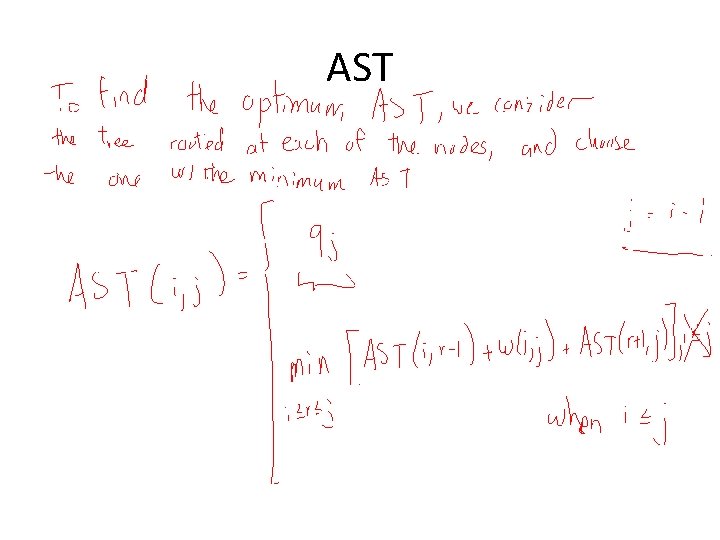 AST
To find the optimum AST, we consider
the tree rooted at each of the nodes, and choose
the one w/ the minimum AST
AST(i,j) = { q_j j = i - 1
min [AST(i,r-1) + w(i,j) + AST(r+1,j)],
i≤r≤j when i ≤ j